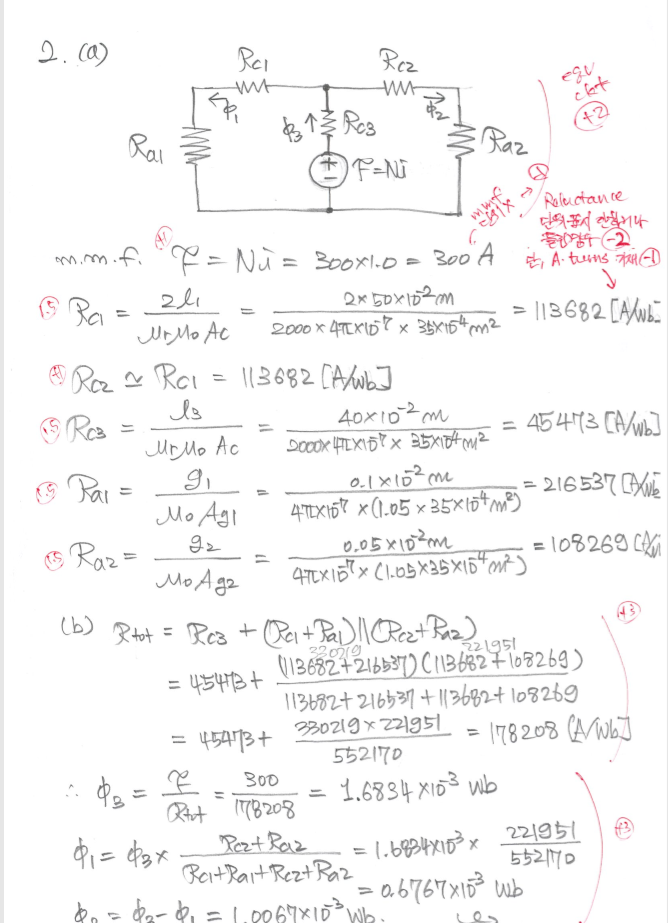 2. (a)
Rc1 Rc2
equ
ckt
+2
ϕ1 ϕ3 ↑ Rc3 ϕ2
Ra1 Ra2
F=Ni
Reluctance
m.m.f. F = Ni = 300×1.0 = 300 A
+1
-2
A·turns (-1)
1.5 Rc1 = 2l1 / μrμ0 Ac = 2×50×10^-2 m / 2000×4π×10^-7 × 35×10^-4 m² = 113682 [A/wb]
+1 Rc2 ≃ Rc1 = 113682 [A/wb]
1.5 Rc3 = l3 / μrμ0 Ac = 40×10^-2 m / 2000×4π×10^-7 × 35×10^-4 m² = 45473 [A/wb]
1.5 Ra1 = g1 / μ0 Ag1 = 0.1×10^-2 m / 4π×10^-7 × (1.05 × 35×10^-4 m²) = 216537 [A/wb
1.5 Ra2 = g2 / μ0 Ag2 = 0.05×10^-2 m / 4π×10^-7 × (1.05×35×10^-4 m²) = 108269 [A/
+3
(b) Rtot = Rc3 + (Rc1+Ra1)||(Rc2+Ra2)
330219 221951
= 45473 + (113682+216537)(113682+108269) / 113682+216537+113682+108269
= 45473 + 330219×221951 / 552170 = 178208 [A/Wb]
∴ ϕ3 = F / Rtot = 300 / 178208 = 1.6834×10^-3 wb
+3
ϕ1 = ϕ3 × Rc2+Ra2 / Rc1+Ra1+Rc2+Ra2 = 1.6834×10^-3 × 221951 / 552170
= 0.6767×10^-3 wb
ϕ2 = ϕ3 - ϕ1 = 1.0067×10^-3 wb.